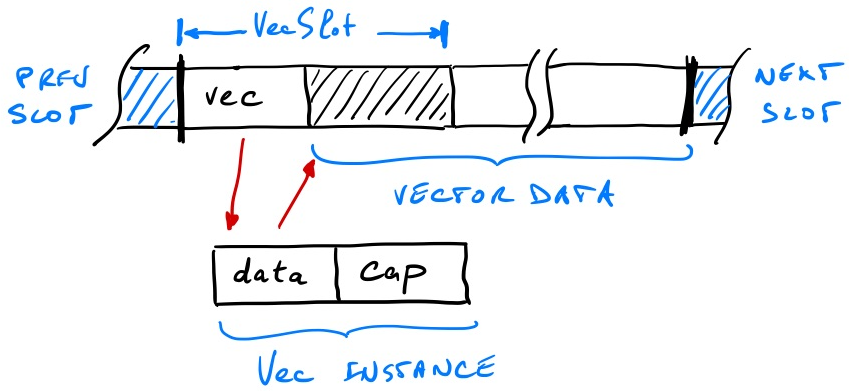 VecSlot
PREV
SLOT
vec
NEXT
SLOT
VECTOR DATA
data
cap
Vec INSTANCE